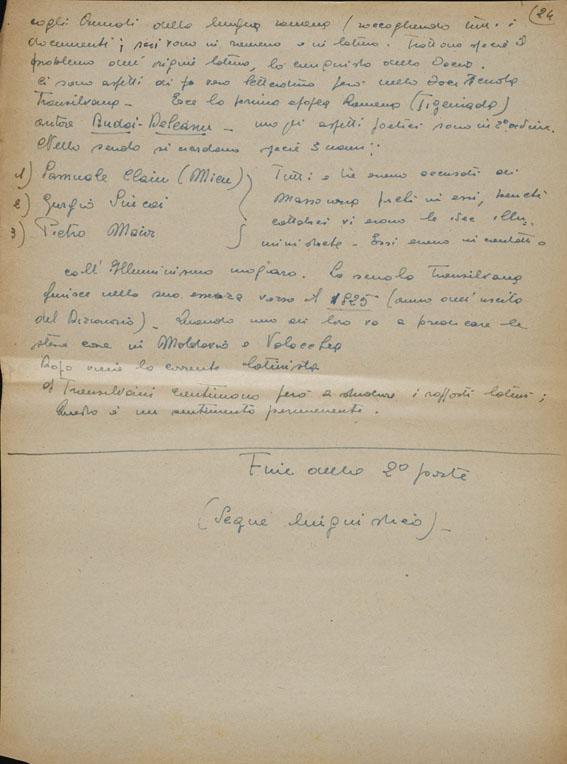 24
cogli Annali della lingua romena (raccogliendo tutti i
documenti; essi sono in rumeno e in latino. Trattano specie il
problema dell'origine latina, la conquista della Dacia.
Ci sono aspetti di vera letteratura però nella Scuola
Transilvana - Ecco la prima epopea Romena (Tiganiada)
autore Budai-Deleanu - ma gli aspetti poetici sono in 2° ordine.
Nello studio si ricordano specie 3 nomi:
1) Samuele Clain (Micu)
2) Giorgio Sincai
3) Pietro Maior
Tutti e tre erano accusati di
Massoneria in essi, benché
cattolici vi erano le idee illu-
ministiche - Essi erano in contatto
coll'Illuminismo magiaro. La scuola Transilvana
finisce nella sua essenza verso il 1825 (anno dell'uscita
del Dizionario). Quando uno di loro va a predicare le
stesse cose in Moldavia e Valacchia
Dopo viene la corrente latinista
I Transilvani continuano però a studiare i rapporti latini;
questo è un sentimento permanente.
Fine della 2° parte
(Segue linguistica) -